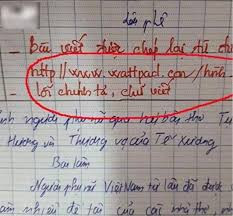 Lời phê
- Bài viết được chép lại từ ch
http://www.wattpad.com/hình
- lỗi chính tả, chữ viết
ình người phụ nữ qua hai bài thơ T
Hương và Thương vợ của Tế Xương
Bài làm
Người phụ nữ Việt Nam từ lâu đã được
am nhiều đề tài của các nhà thơ, nh